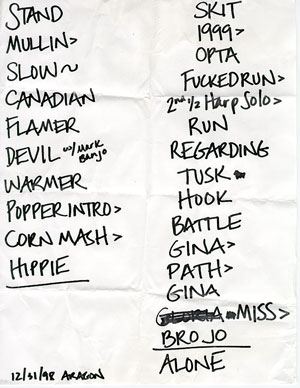 STAND
MULLIN>
SLOW~
CANADIAN
FLAMER
DEVIL w/ Mark Banjo
WARMER
POPPER INTRO>
CORN MASH>
HIPPIE
12/31/98 ARAGON
SKIT
1999>
OPTA
FUCKED RUN>
2nd 1/2 Harp Solo>
RUN
REGARDING
TUSK
HOOK
BATTLE
GINA>
PATH>
GINA
GLORIA MISS>
BROJO
ALONE